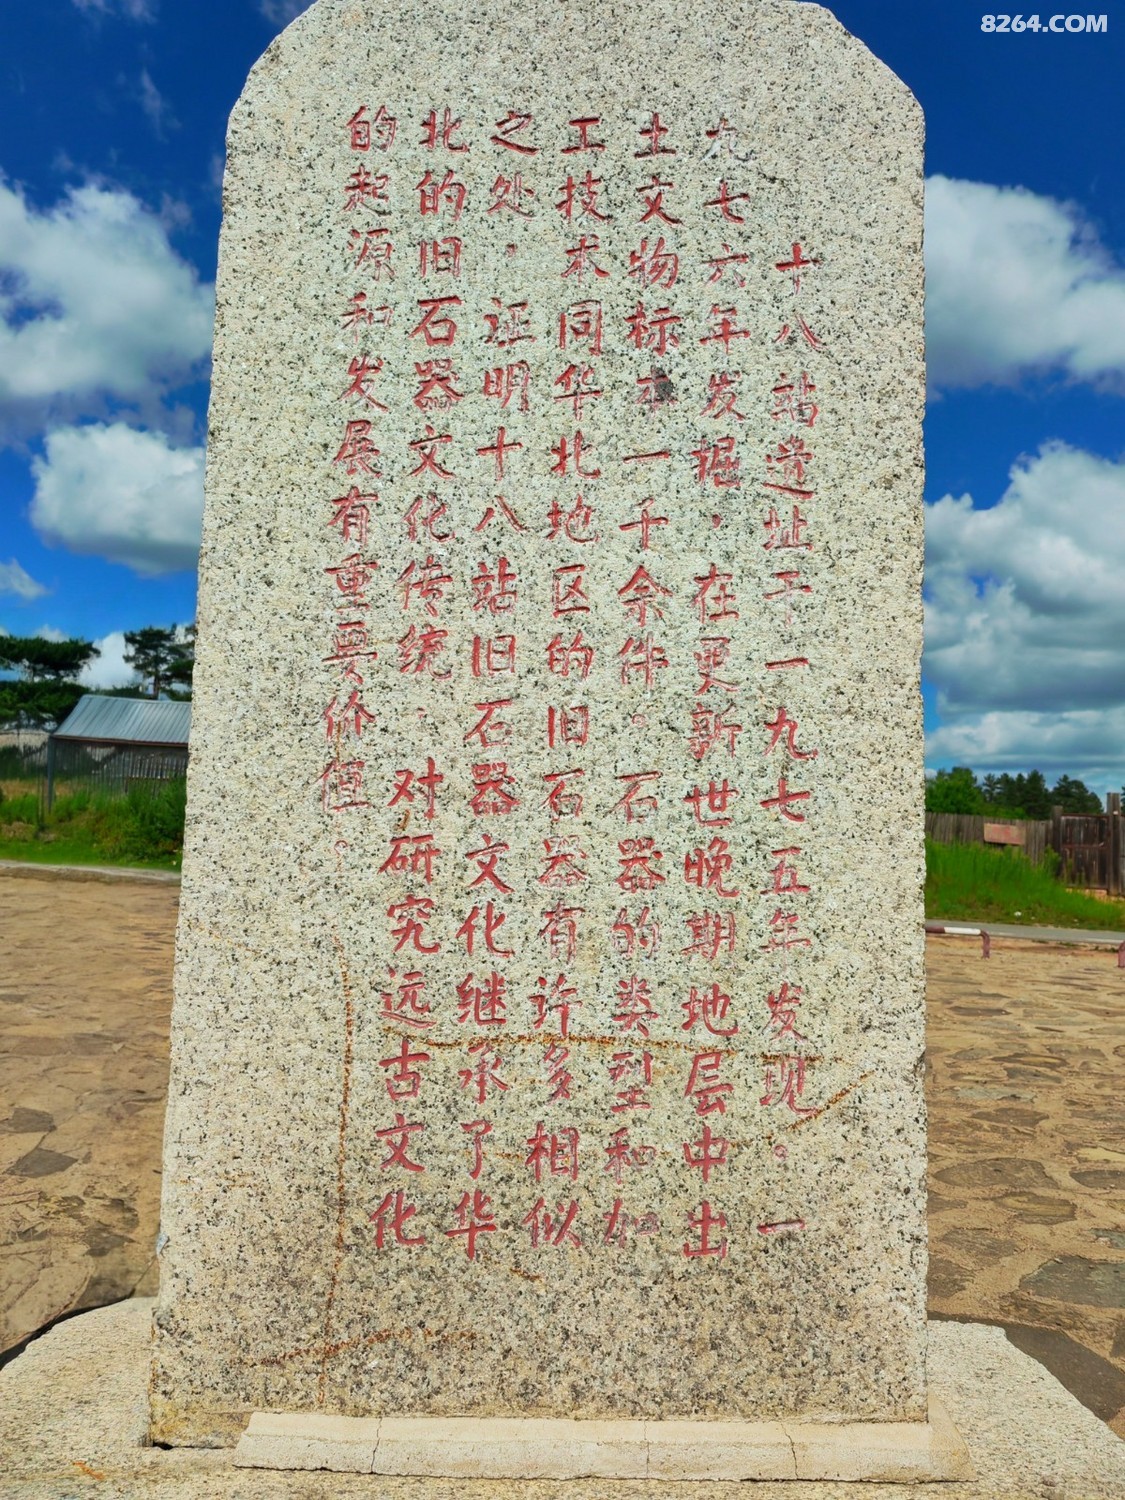 8264.COM
十八站遗址于一九七五年发现。一
九七六年发掘，在更新世晚期地层中出
土文物标本一千余件。石器的类型和加
工技术同华北地区的旧石器有许多相似
之处，证明十八站旧石器文化继承了华
北的旧石器文化传统，对研究远古文化
的起源和发展有重要价值。